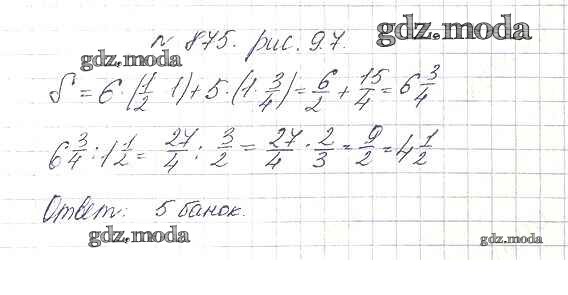 gdz.moda
№ 875. рис. 9.7.
gdz.moda
S = 6 · (1/2 · 1) + 5 · (1 · 3/4) = 6/2 + 15/4 = 6 3/4
6 3/4 : 1 1/2 = 27/4 : 3/2 = 27/4 · 2/3 = 9/2 = 4 1/2
Ответ: 5 банок.
gdz.moda
gdz.moda